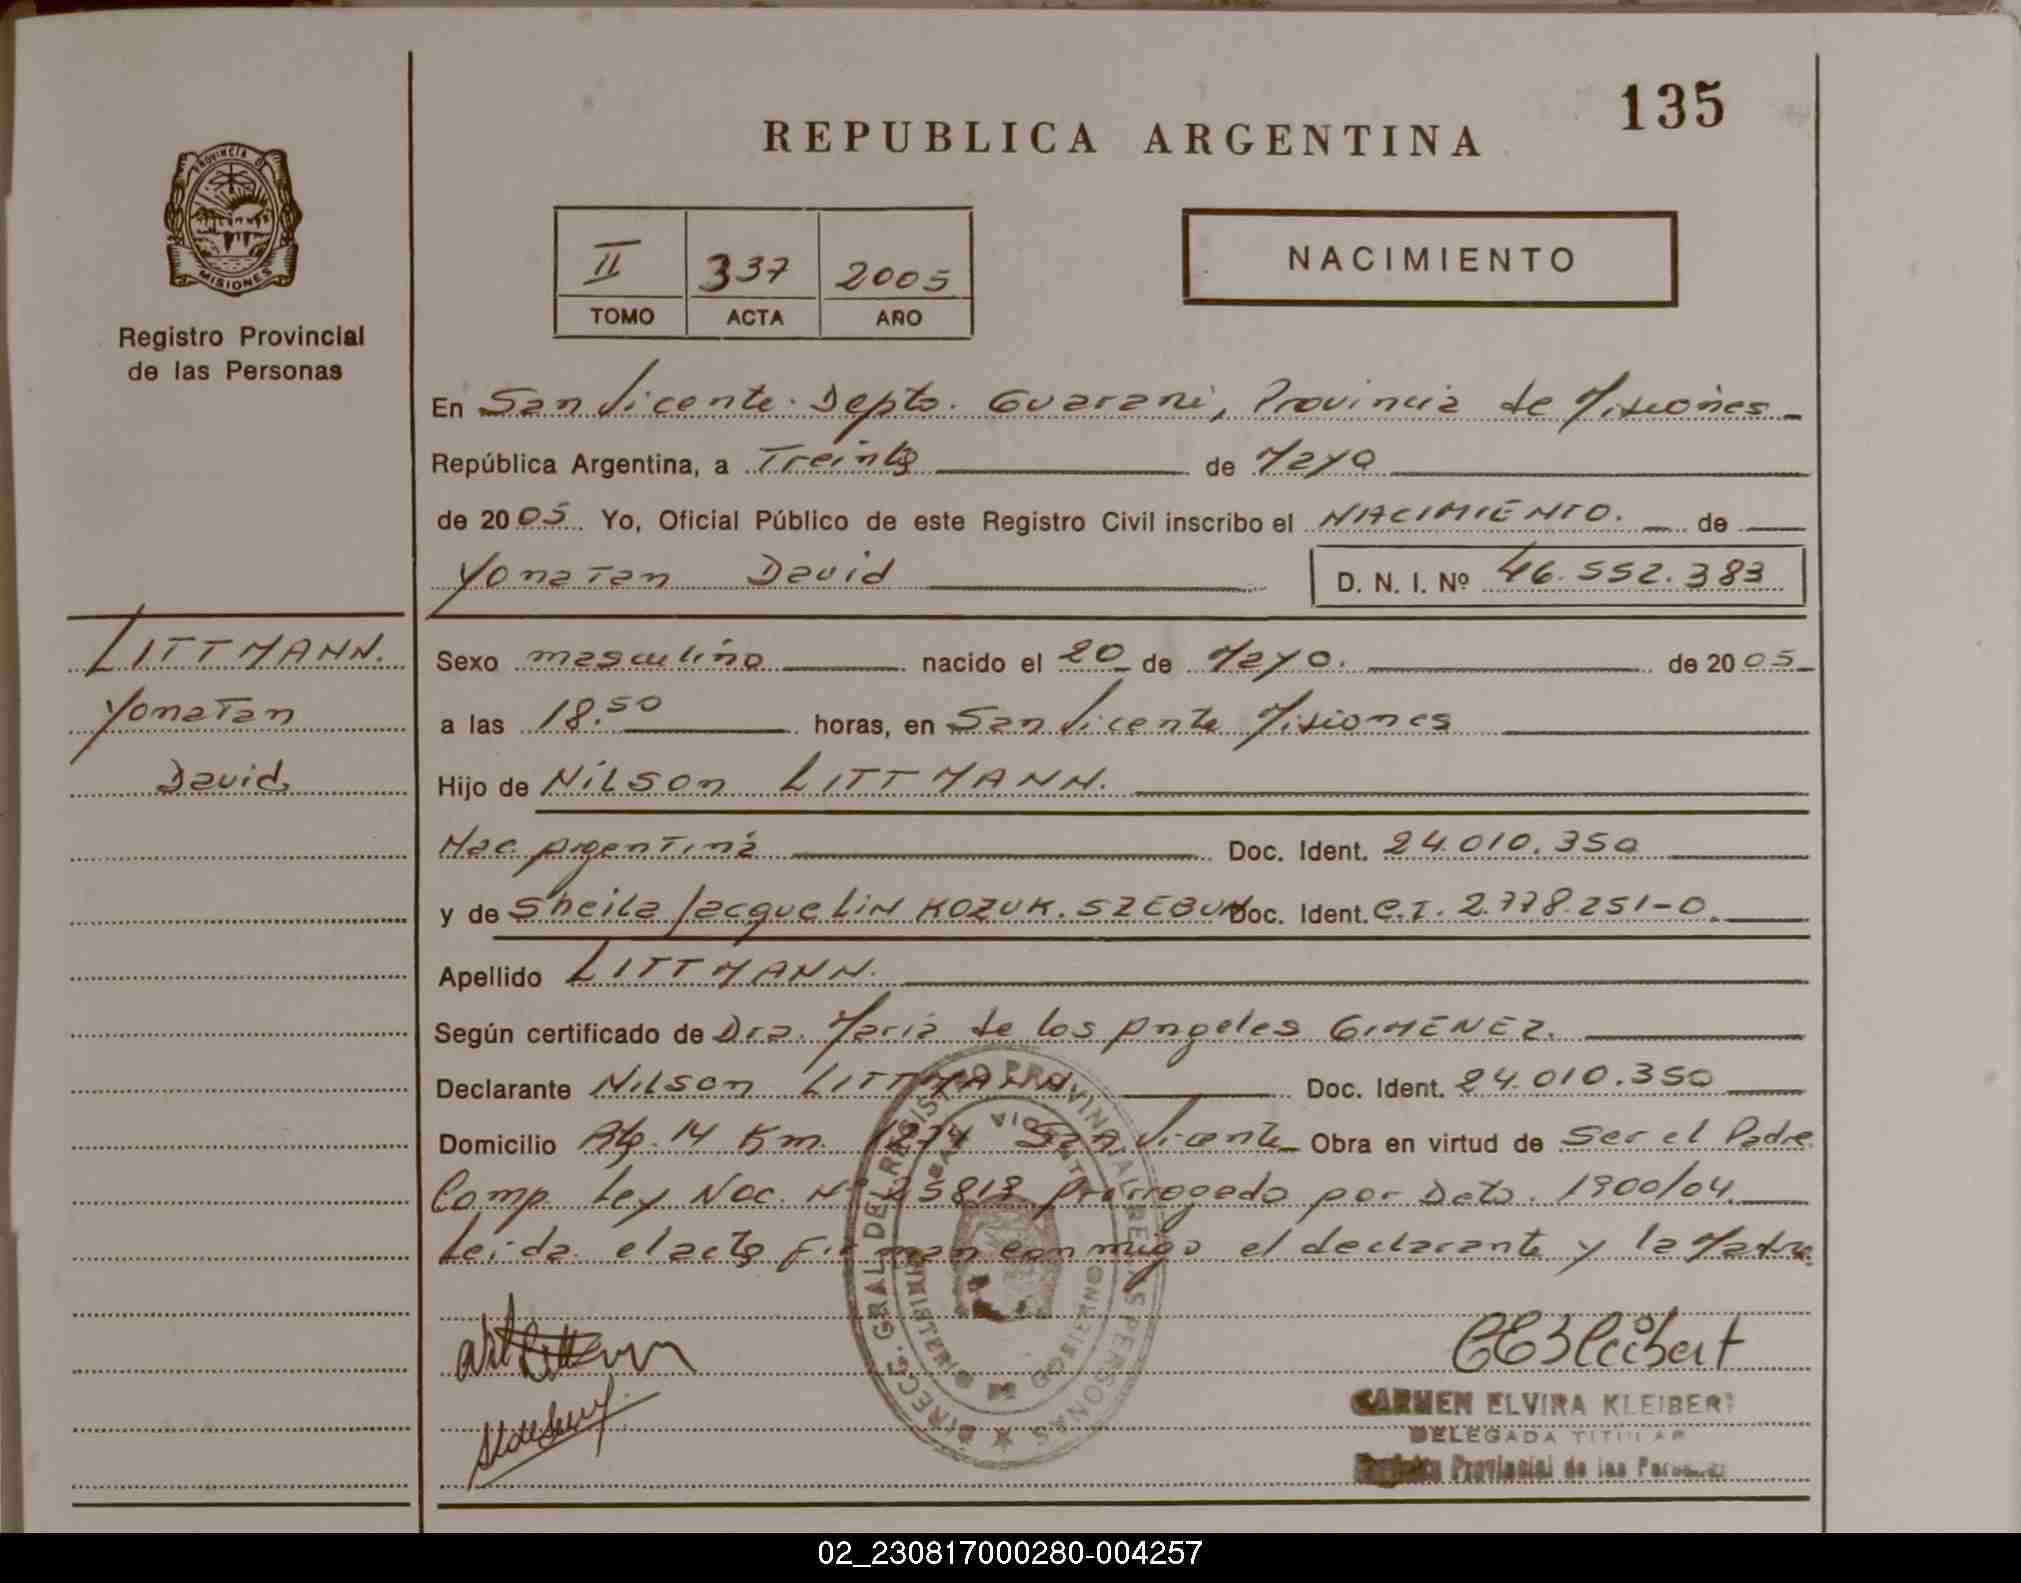 135
REPUBLICA ARGENTINA
PROVINCIA DE
MISIONES
Registro Provincial
de las Personas
II 337 2005
TOMO ACTA AÑO
NACIMIENTO
En San Vicente. Depto. Guarani, Provincia de Misiones
República Argentina, a Treinta de Mayo
de 2005 Yo, Oficial Público de este Registro Civil inscribo el NACIMIENTO. de
Yonatan David D. N. I. Nº 46.552.383
LITTMANN.
Yonatan
David
Sexo masculino nacido el 20 de Mayo. de 2005
a las 18.50 horas, en San Vicente Misiones
Hijo de Nilson LITTMANN.
Nac. Argentina Doc. Ident. 24.010.350
y de Sheila Jacquelin KOZUK. SZEBUN Doc. Ident. C.I. 2.778.251-0.
Apellido LITTMANN.
Según certificado de Dra. Maria de los Angeles GIMENEZ.
Declarante Nilson LITTMANN. Doc. Ident. 24.010.350
Domicilio Rta. 14 Km. 1274 San Vicente Obra en virtud de Ser el Padre
Comp. Ley Nac. Nº 25819 Prorrogado por Dcto. 1900/04.
Leida el acta firman conmigo el declarante y la Madre.
DIRECC. GRAL. DEL REGISTRO PROVINCIAL DE LAS PERSONAS
CARMEN ELVIRA KLEIBERT
DELEGADA TITULAR
Registro Provincial de las Personas
02_230817000280-004257